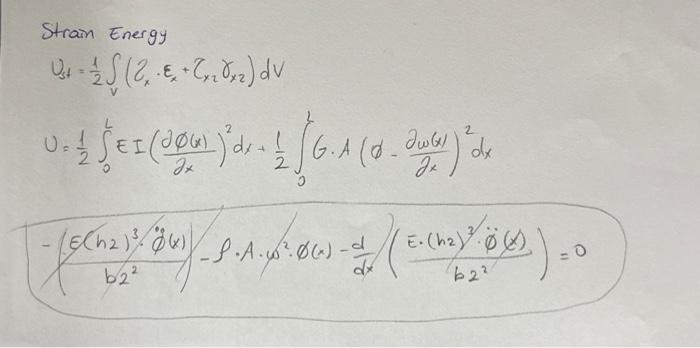 Strain Energy
U_st = 1/2 ∫_V (τ_x · ε_x + τ_xz γ_xz) dV
U = 1/2 ∫_0^L E I (∂Ø(x)/∂x)² dx + 1/2 ∫_0^L G.A (Ø - ∂w(x)/∂x)² dx
-(E(h2)³. Ø̈(x) / b2²) - ρ.A.ω². Ø(x) - d/dx (E.(h2)³. Ö(x) / b2²) = 0